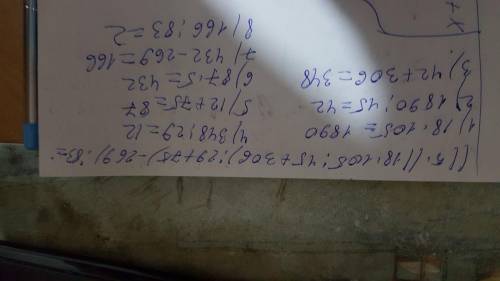 ((5·((18·105:45+306):29+75)-269):83=
1) 18·105=1890
2) 1890:45=42
3) 42+306=348
4) 348:29=12
5) 12+75=87
6) 87·5=432
7) 432-269=166
8) 166:83=2